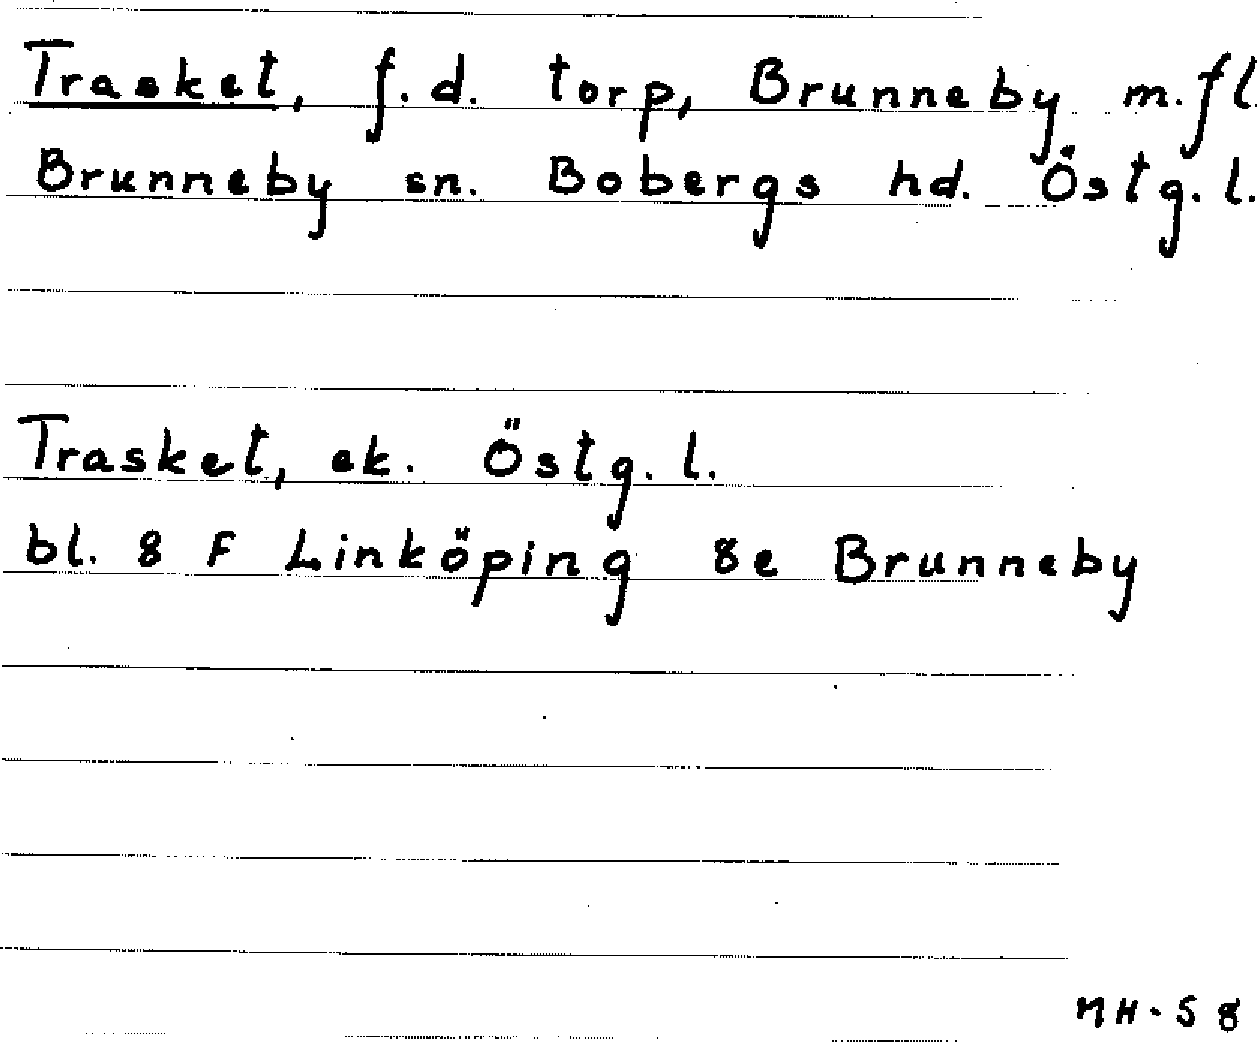 Trasket, f.d. torp, Brunneby m.fl.
Brunneby sn. Bobergs hd. Östg. l.
Trasket, ek. Östg. l.
bl. 8 F Linköping 8e Brunneby
MH-58